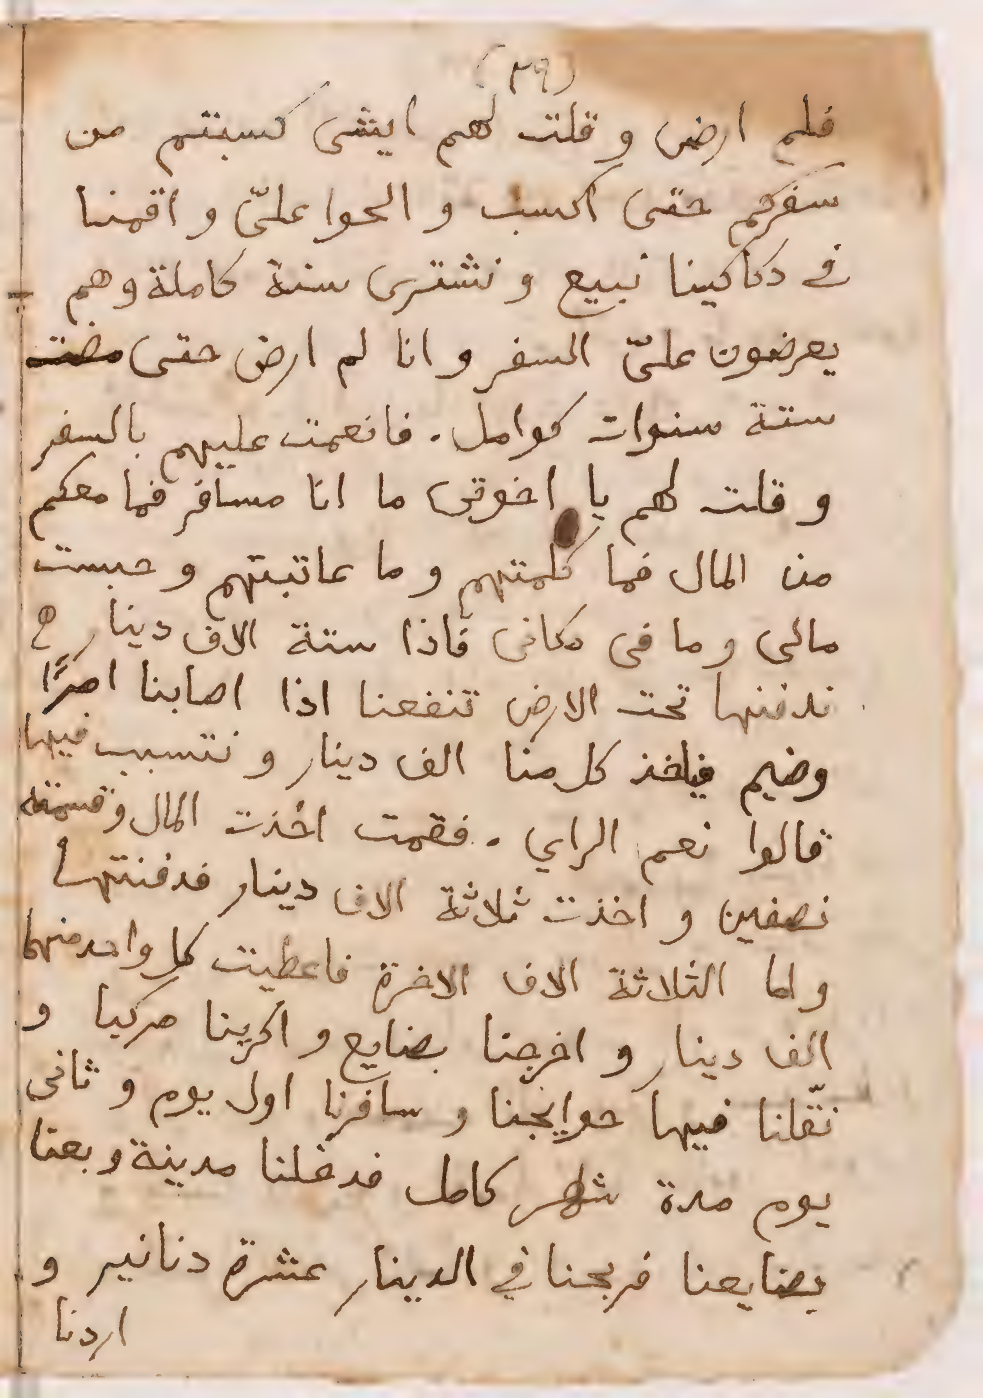 (٢٩)
فلم ارض و قلت لهم ايشى كسبتم من
سفركم حتى اكسب و الحوا علىّ و اقمنا
فى دكاكينا نبيع و نشترى سنة كاملة وهم
يعرضون علىّ السفر و انا لم ارض حتى مضت
ستة سنوات كوامل. فانعمت عليهم بالسفر
و قلت لهم يا اخوتى ما انا مسافر فما معكم
من المال فما كلمتهم و ما عاتبتهم و حبست
مالى و ما فى مكانى فاذا ستة الاف دينار
ندفنها تحت الارض تنفعنا اذا اصابنا امرًا
وضيم فياخذ كل منا الف دينار و نتسبب فيها
قالوا نعم الراي . فقمت اخذت المال وقسمته
نصفين و اخذت ثلاثة الاف دينار فدفنتها
و اما الثلاثة الاف الاخرة فاعطيت كل واحد منهما
الف دينار و اخرجنا بضايع و اكرينا مركبا و
نقّلنا فيها حوايجنا و سافرنا اول يوم و ثانى
يوم مدة شهر كامل فدخلنا مدينة و بعنا
بضايعنا فربحنا فى الدينار عشرة دنانير و
اردنا